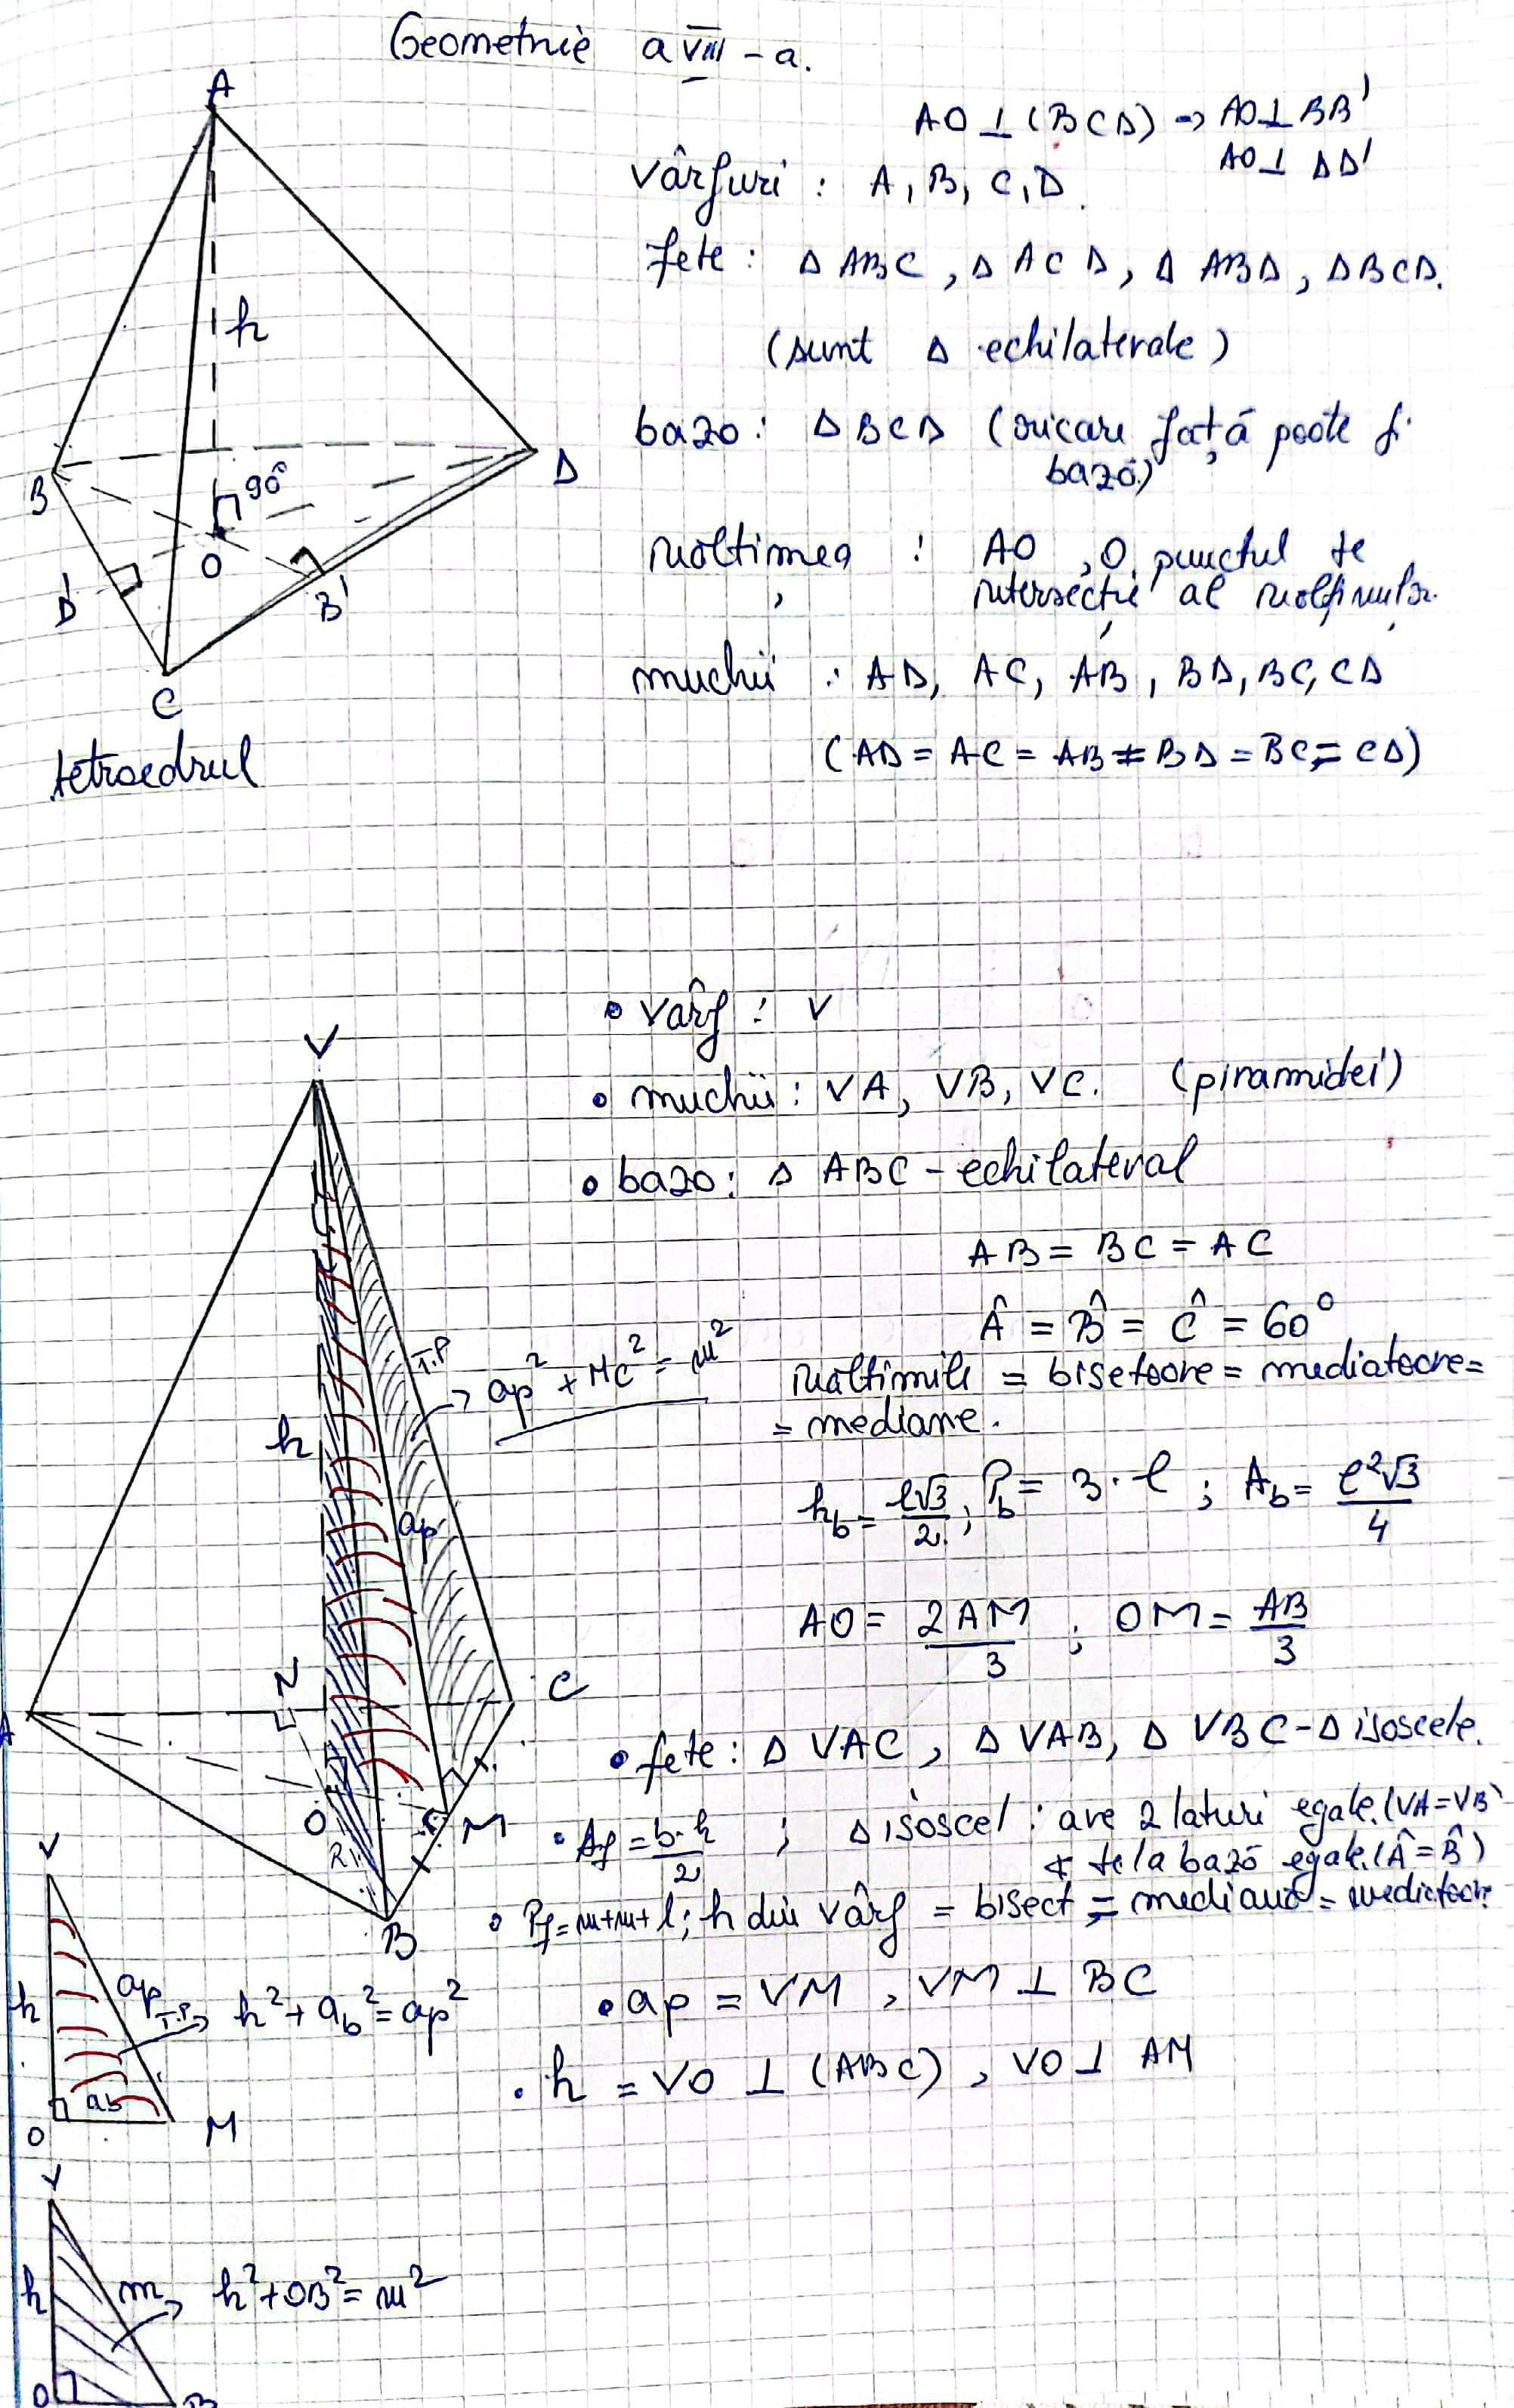 Geometrie a VIII-a.
A
AO ⊥ (BCD) → AO ⊥ BB'
AO ⊥ DD'
vârfuri : A, B, C, D.
fețe : Δ ABC, Δ ACD, Δ ABD, Δ BCD.
(sunt Δ echilaterale)
h
bază : Δ BCD (oricare față poate fi
bază)
B
D
90°
O
D'
B'
C
înălțimea : AO, O punctul de
intersecție al înălțimilor.
muchii : AD, AC, AB, BD, BC, CD
(AD = AC = AB = BD = BC = CD)
tetraedrul
• vârf : V
V
• muchii : VA, VB, VC. (piramidei)
• bază : Δ ABC - echilateral
AB = BC = AC
Â = B̂ = Ĉ = 60°
T.P → ap² + MC² = m²
înălțimile = bisetoare = mediatoare =
= mediane.
h
h_b = l√3/2 ; P_b = 3 · l ; A_b = l²√3/4
ap
AO = 2AM/3 ; OM = AB/3
N
C
A
• fețe : Δ VAC, Δ VAB, Δ VBC - Δ isoscele.
O
M
• Af = b·h/2 ; Δ isoscel : are 2 laturi egale. (VA = VB)
∢ de la bază egale. (Â = B̂)
• Pf = m+m+l ; h din vârf = bisect = mediană = mediatoare
B
V
h
ap
T.P. → h² + a_b² = ap²
• ap = VM, VM ⊥ BC
• h = VO ⊥ (ABC), VO ⊥ AM
ab
O
M
V
h
m → h² + OB² = m²
O
B